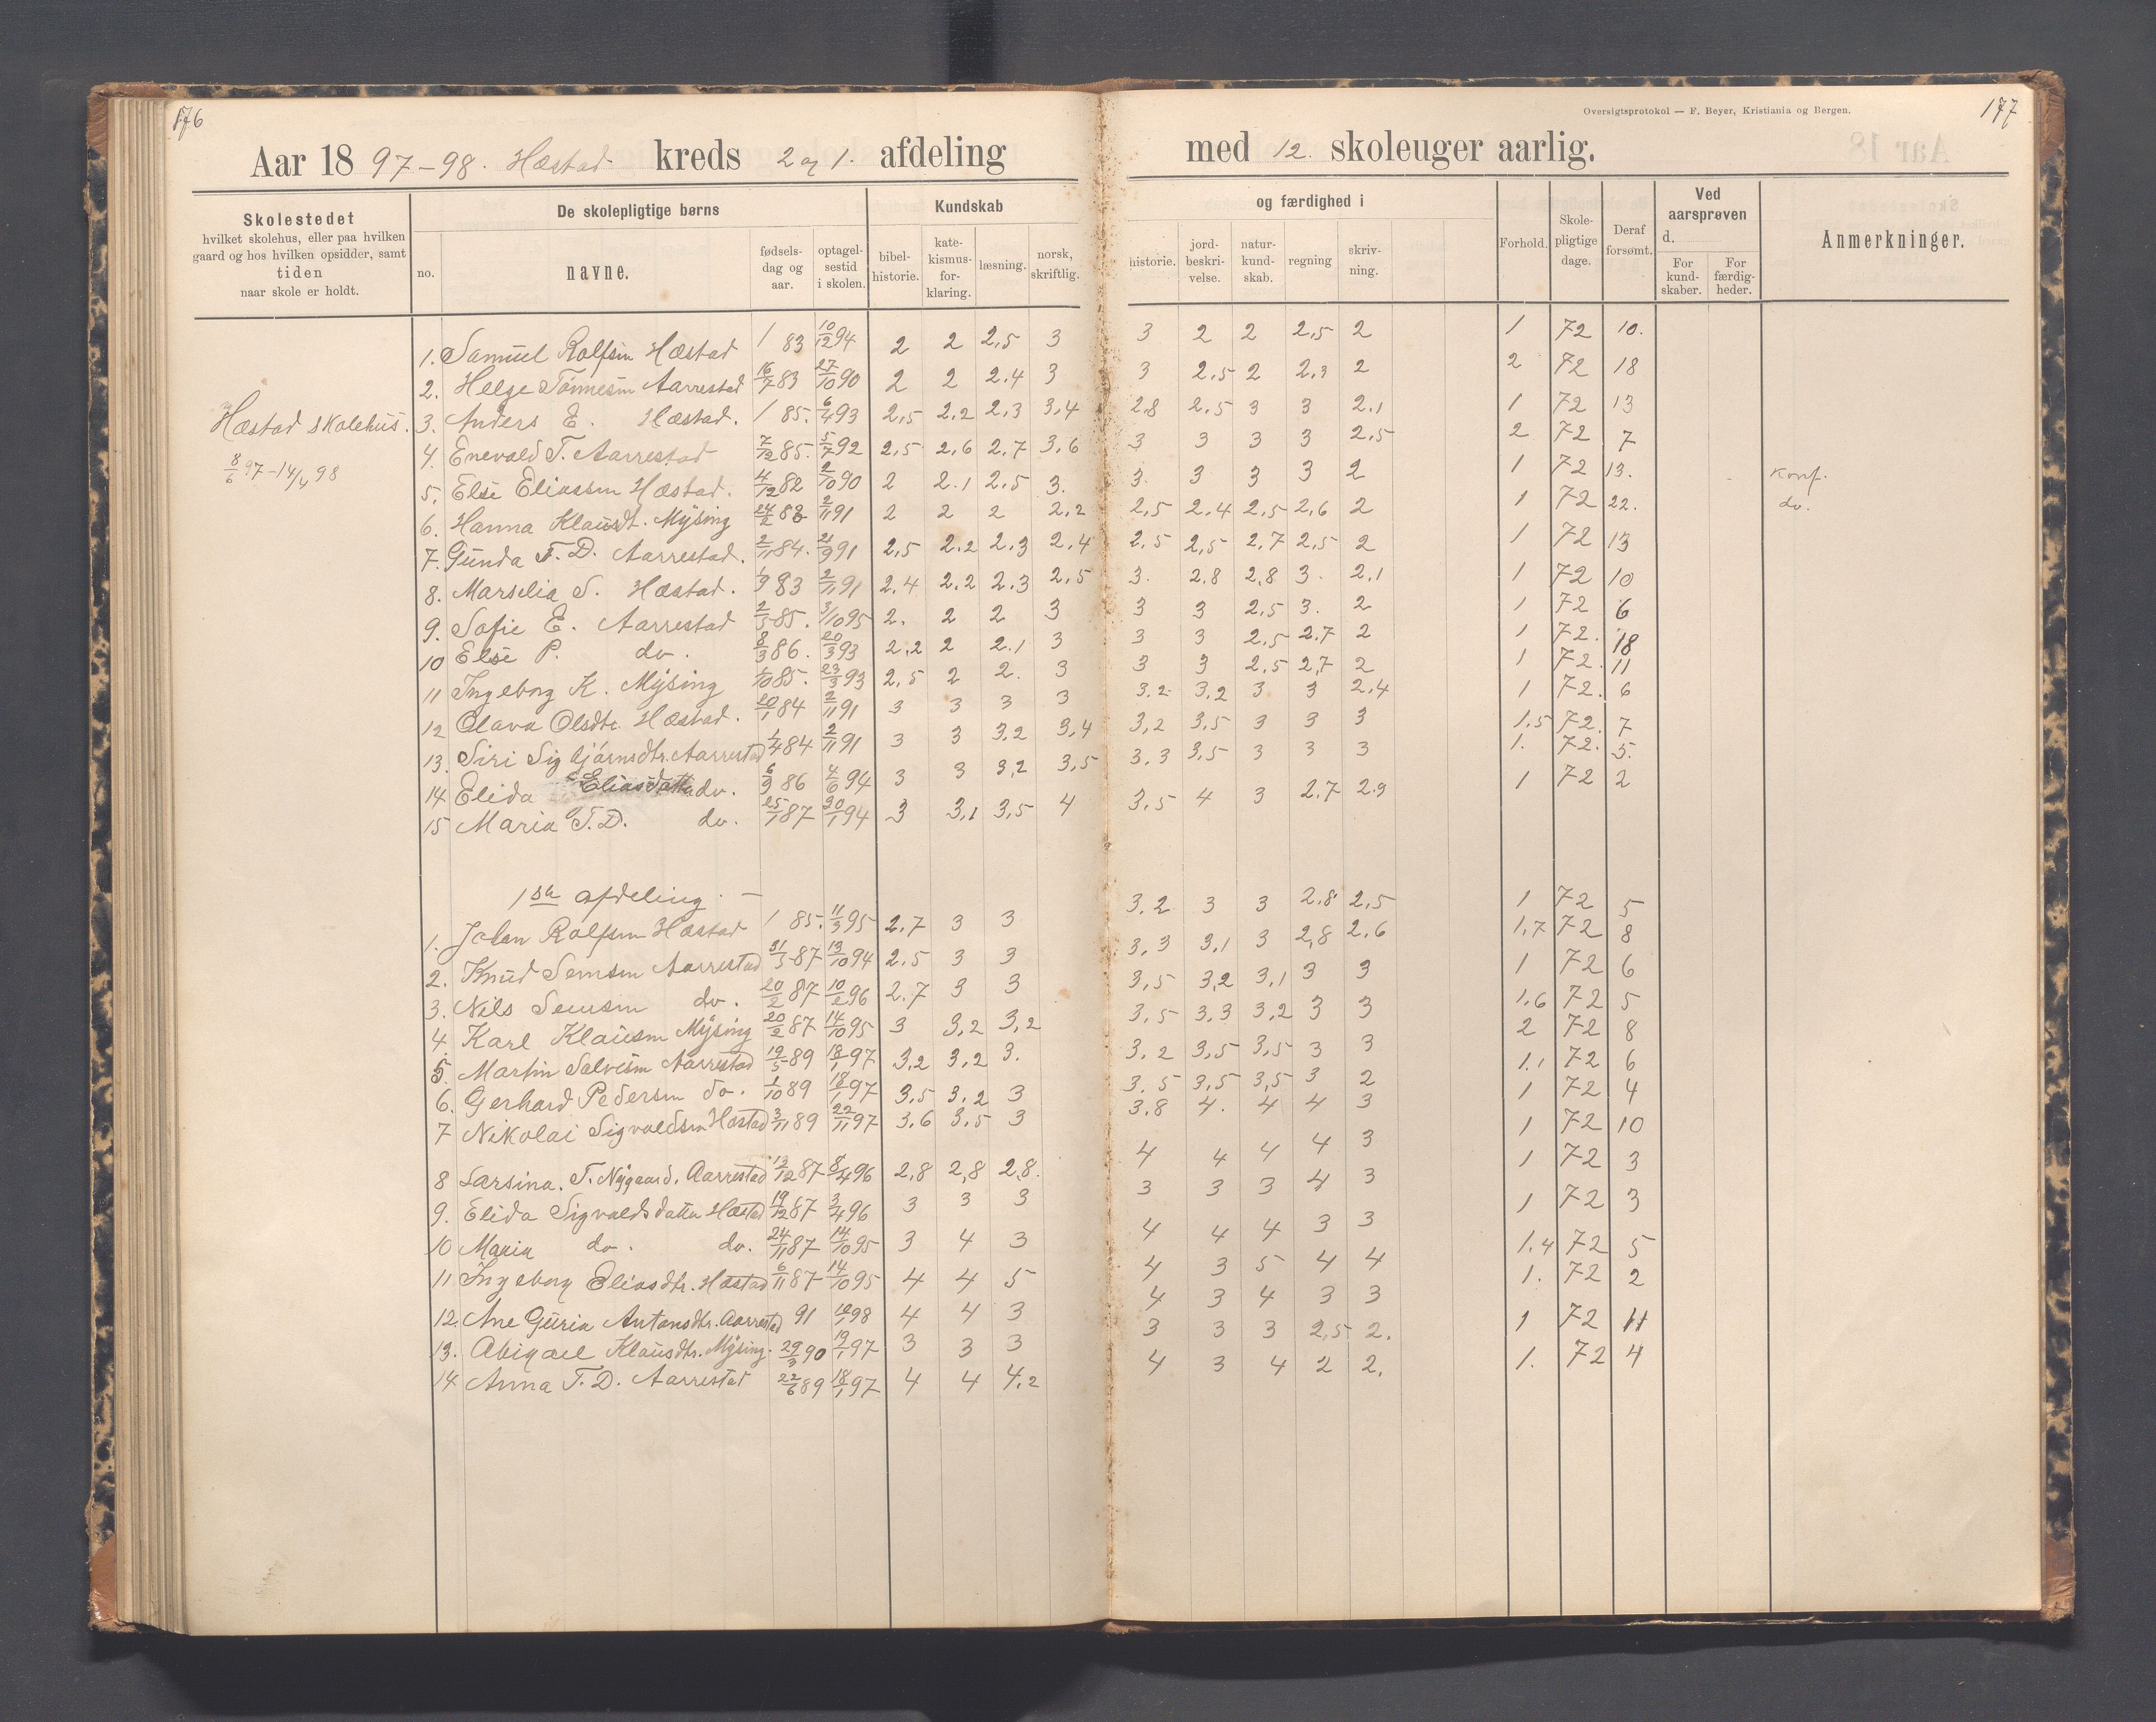 176
Aar 18 97-98. Hæstad kreds 2 og 1. afdeling
Skolestedet
hvilket skolehus, eller paa hvilken
gaard og hos hvilken opsidder, samt
tiden
naar skole er holdt.
De skolepligtige børns
no.
navne.
fødsels-
dag og
aar.
optagel-
sestid
i skolen.
Kundskab
bibel-
historie.
kate-
kismus-
for-
klaring.
læsning.
norsk,
skriftlig.
Oversigtsprotokol — F. Beyer, Kristiania og Bergen.
177
med 12. skoleuger aarlig.
og færdighed i
historie.
jord-
beskri-
velse.
natur-
kund-
skab.
regning
skriv-
ning.
Forhold.
Skole-
pligtige
dage.
Deraf
forsømt.
Ved
aarsprøven
d.
For
kund-
skaber.
For
færdig-
heder.
Anmerkninger.
Hæstad skolehus.
8/6 97-14/4 98
1. Samuel Rolfsen Hæstad / 83 10/12 94 2 2 2,5 3 3 2 2 2,5 2 1 72 10.
2. Helge Tønnesen Aarrestad 16/7 83 27/10 90 2 2 2.4 3 3 2,5 2 2,3 2 2 72 18
3. Anders E. Hæstad. / 85. 6/4 93 2,5 2,2 2,3 3,4 2,8 2,5 3 3 2.1 1 72 13
4. Enevald T. Aarrestad 7/12 85. 5/7 92 2,5 2,6 2,7 3,6 3 3 3 3 2,5 2 72 7
5. Else Eliassen Hæstad. 4/12 82 2/10 90 2 2.1 2,5 3. 3. 3 3 3 2 1 72 13. Konf.
6. Hanna Klausdt. Mÿsing 24/2 83 2/11 91 2 2 2 2,2 2,5 2.4 2,5 2,6 2 1 72 22. do.
7. Gunda T. D. Aarrestad. 2/11 84. 21/9 91 2,5 2.2 2.3 2.4 2.5 2,5 2,7 2,5 2 1 72 13
8. Marselia S. Hæstad. 1/9 83 2/11 91 2.4 2.2 2.3 2,5 3. 2.8 2,8 3. 2.1 1 72 10
9. Sofie E. Aarrestad 2/5 85. 3/10 95 2. 2 2 3 3 3 2,5 3. 2 1 72 6
10 Else P. do. 8/3 86. 20/3 93 2,2 2 2.1 3 3 3 2,5 2.7 2 1 72. 18
11 Ingeborg K. Mÿsing 1/10 85. 23/3 93 2,5 2 2. 3 3 3 2.5 2,7 2 1 72. 11
12 Olava Olsdtr. Hæstad. 20/1 84 2/11 91 3 3 3 3 3,2 3,2 3 3 2.4 1 72. 6
13. Siri Sigbjørnsdtr. Aarrestad 1/4 84 2/11 91 3 3 3,2 3,4 3,2 3,5 3 3 3 1.5 72. 7
14 Elida Eliasdatter do. 6/9 86 4/6 94 3 3 3,2 3,5 3,3 3,5 3 3 3 1. 72. 5.
15 Maria T. D. do. 25/1 87 30/1 94 3 3,1 3,5 4 3,5 4 3 2.7 2.9 1 72 2
1ste afdeling. —
1. Johan Rolfsen Hæstad / 85. 11/3 95 2.7 3 3 3,2 3 3 2,8 2,5 1 72 5
2. Knud Semsen Aarrestad 31/5 87 13/10 94 2.5 3 3 3,3 3,1 3 2,8 2.6 1,7 72 8
3. Nils Semsen do. 20/2 87 10/2 96 2.7 3 3 3,5 3,2 3,1 3 3 1 72 6
4. Karl Klausen Mÿsing 20/2 87 14/10 95 3 3,2 3,2 3,5 3,3 3,2 3 3 1.6 72 5
5. Martin Salvesen Aarrestad 19/5 89 18/1 97 3,2 3,2 3. 3,2 3,5 3,5 3 3 2 72 8
6. Gerhard Pedersen do. 1/10 89 18/1 97 3,5 3,2 3 3.5 3,5 3,5 3 2 1.1 72 6
7 Nikolai Sigvaldsen Hæstad 3/11 89 22/11 97 3,6 3,5 3 3.8 4. 4 4 3 1 72 4
8 Larsina. T. Nygaard. Aarrestad 13/12 87 8/4 96 2,8 2,8 2,8. 4 4 4 4 3 1 72 10
9. Elida Sigvaldsdatter Hæstad 19/12 87 3/4 96 3 3 3 3 3 3 4 3 1 72 3
10 Maria do. do. 24/11 87 14/10 95 3 4 3 4 4 4 3 3 1 72 3
11 Ingeborg Eliasdtr. Hæstad 6/11 87 14/10 95 4 4 5 4 3 5 4 4 1.4 72 5
12. Ane Guria Antonsdtr. Aarrestad 91 10/1 98 4 4 3 4 3 4 3 3 1. 72 2
13. Abigael Klausdtr. Mÿsing. 29/3 90 19/1 97 3 3 3 3 3 3 2,5 2. 1 72 11
14 Anna T. D. Aarrestad 22/6 89 18/1 97 4 4 4.2 4 3 4 2 2. 1. 72 4